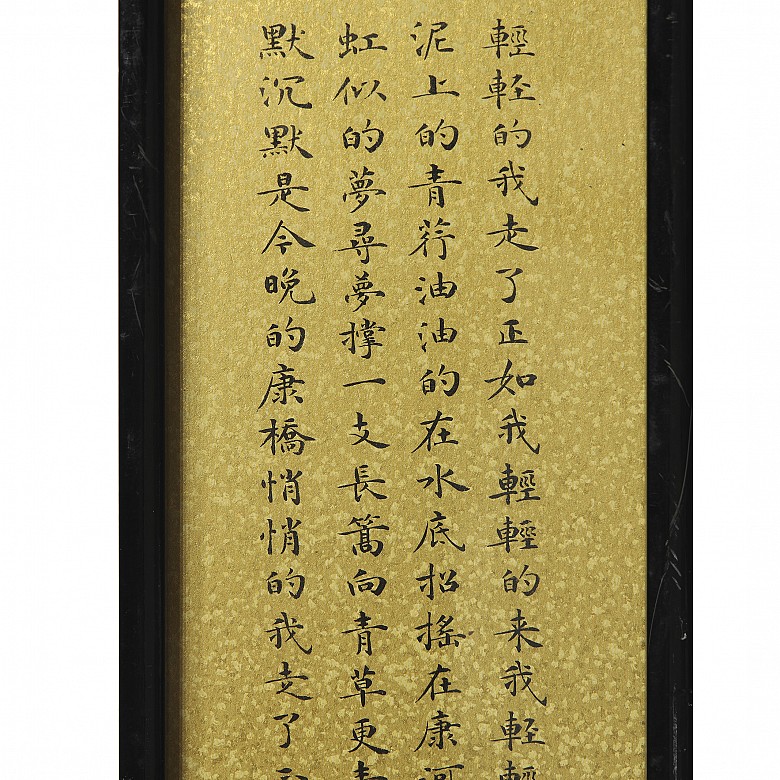 輕輕的我走了正如我輕輕的来我輕
泥上的青荇油油的在水底招搖在康河
虹似的夢尋夢撑一支長篙向青草更青
默沉默是今晚的康橋悄悄的我走了正